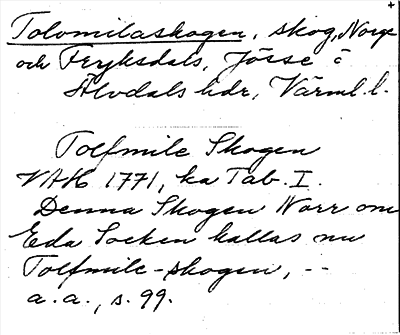 Tolomilaskogen, skog, Norge
och Fryksdals, Jösse o
Älvdals hdr, Värml. l.
Tolfmile Skogen
VAH 1771, ka Tab. I.
Denna Skogen Norr om
Eda Socken kallas nu
Tolfmile-skogen, --
a. a., s. 99.